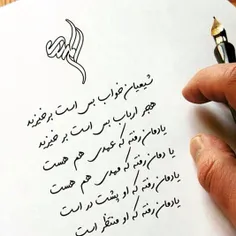 المهدی
شیعیان خواب بس است برخیزید
هجر ارباب بس است برخیزید
یادمان رفته که عهدی هم هست
یادمان رفته که مهدی هم هست
یادمان رفته که او پشت در است
یادمان رفته که او منتظر است